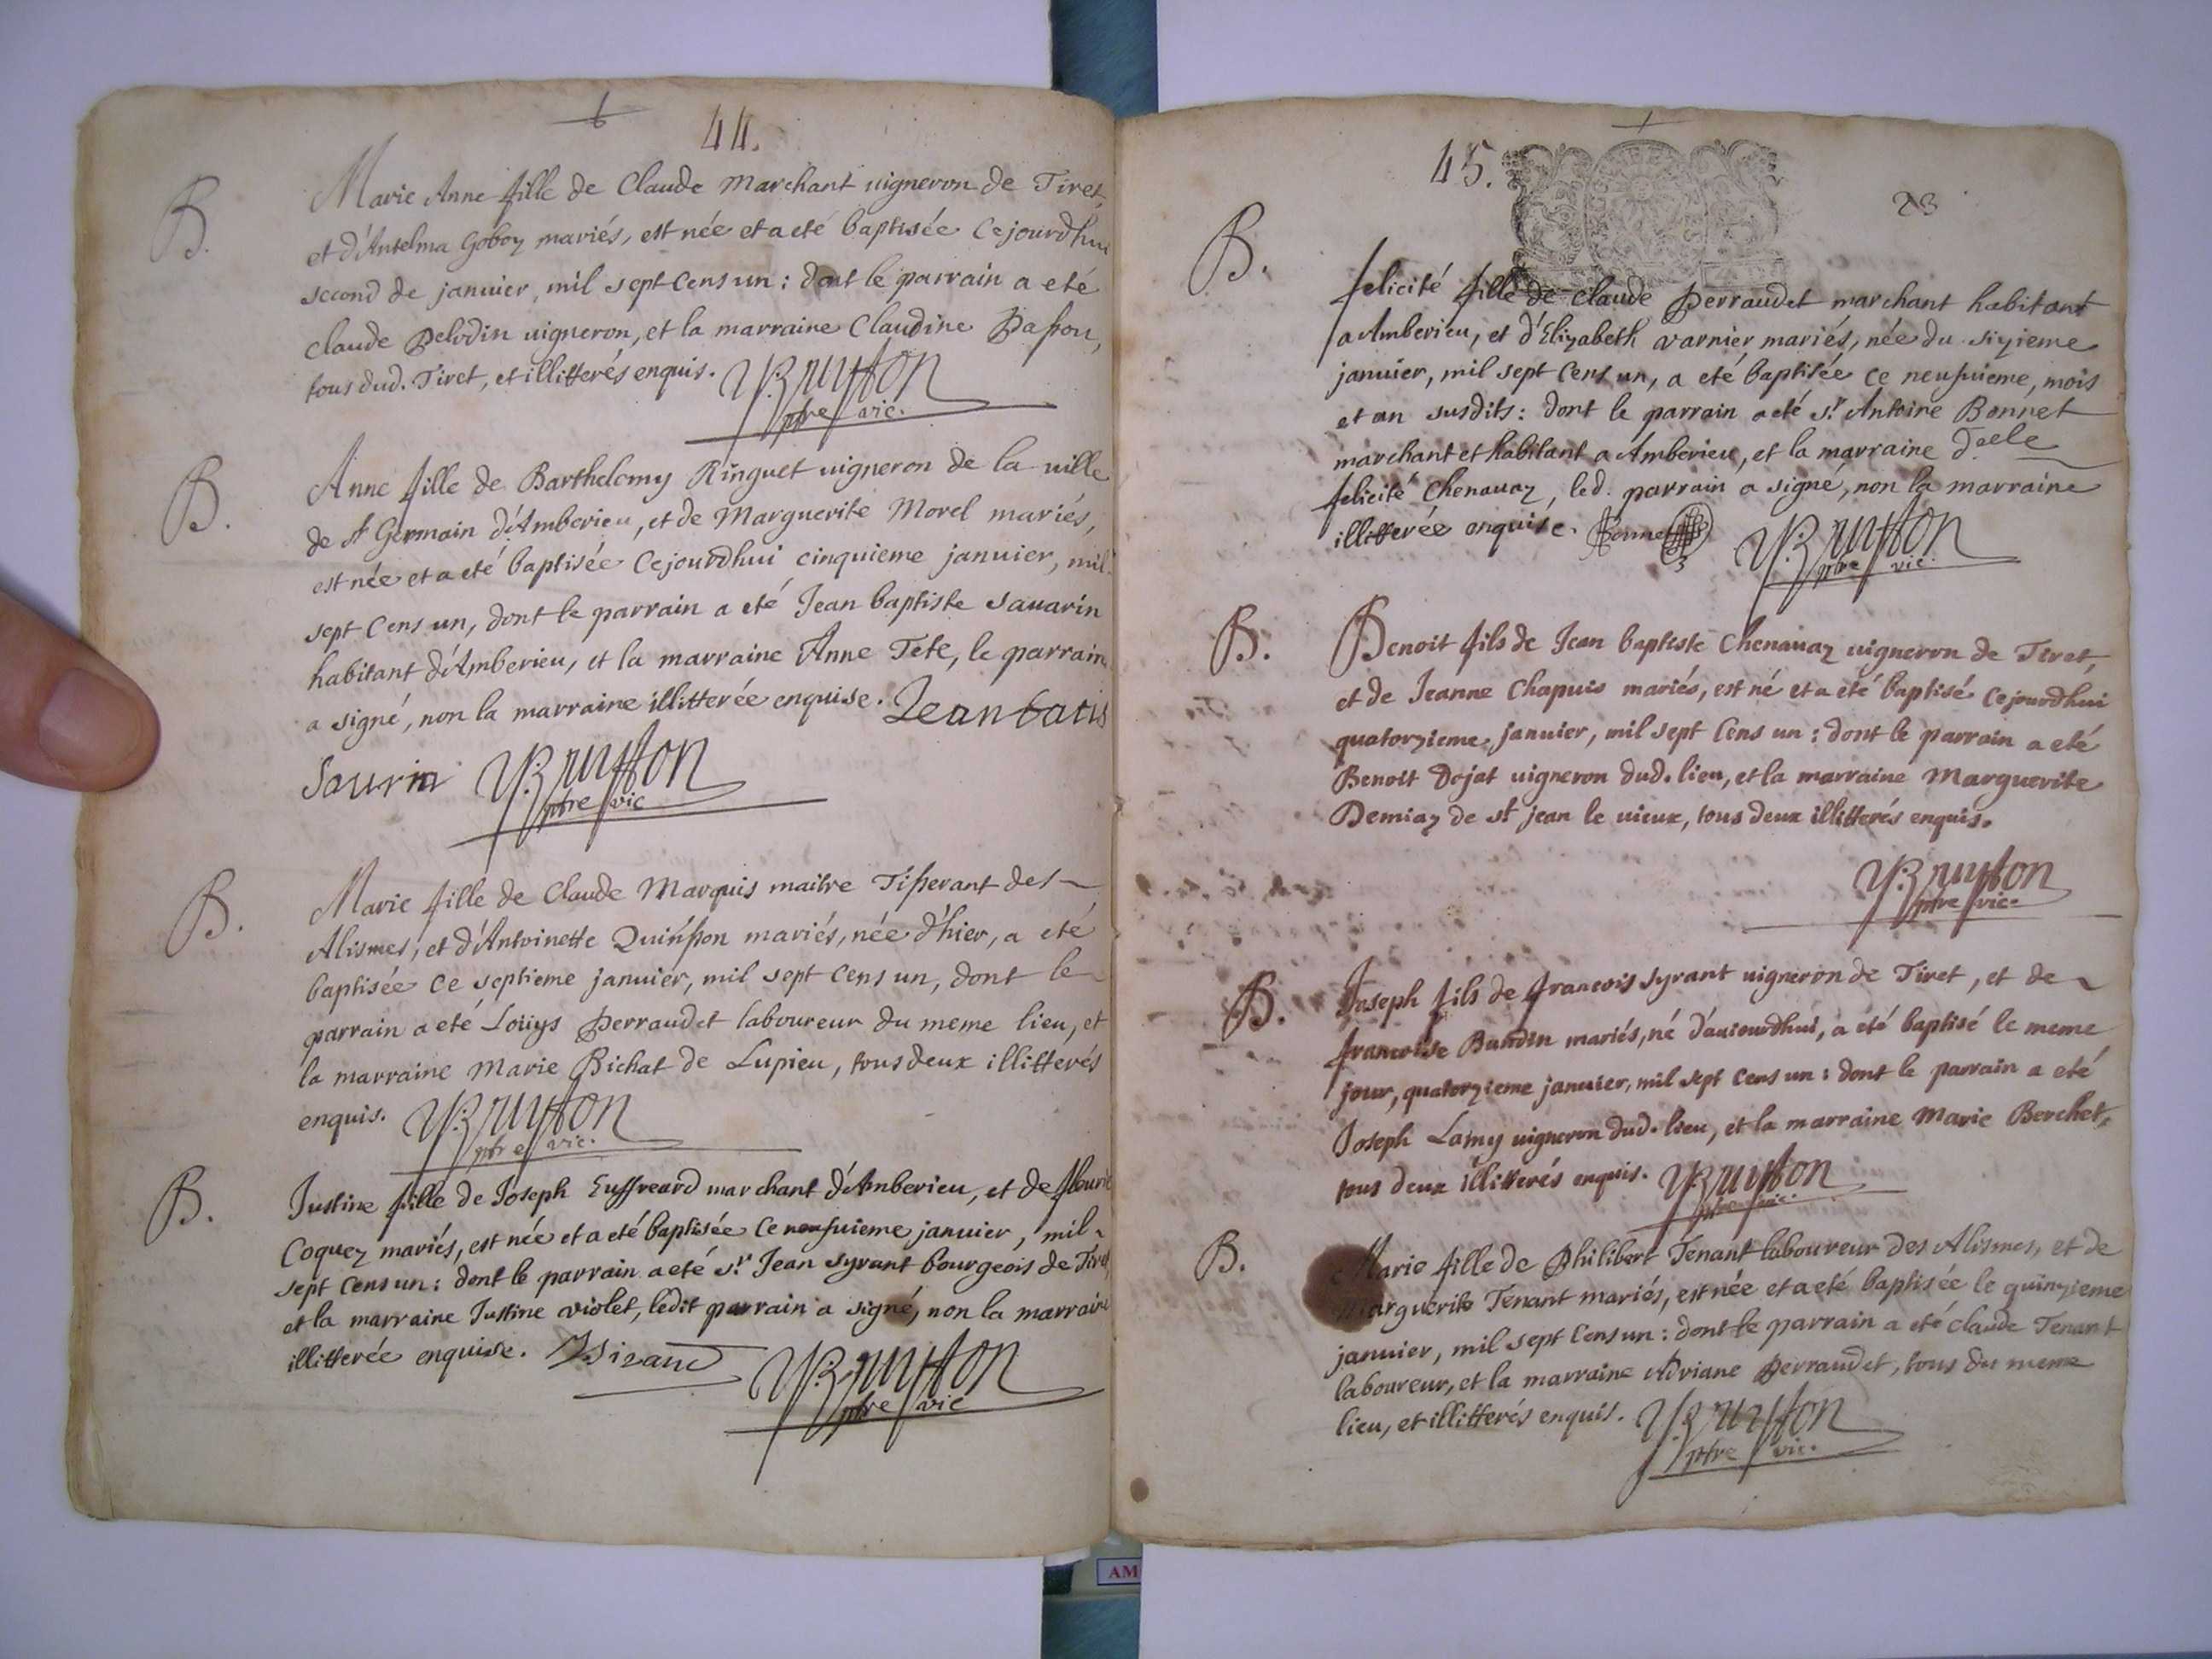 44.
B.
Marie Anne fille de Claude Marchant vigneron de Tiret,
et d'Antelma Goboz mariés, est née et a eté baptisée Cejourdhui
second de janvier, mil sept Cens un : dont le parrain a eté
Claude Pelodin vigneron, et la marraine Claudine
tous dud. Tiret, et illitterés enquis.
ptre vic.
B.
Anne fille de Barthelemy Ringuet vigneron de la ville
de st Germain d'Amberieu, et de Marguerite Morel mariés,
est née et a eté baptisée Cejourdhui cinquieme janvier, mil
sept Cens un, dont le parrain a eté Jean baptiste Savarin
habitant d'Amberieu, et la marraine Anne Tete, le parrain
a signé, non la marraine illitterée enquise. Jean batis
Saurin
ptre vic
B.
Marie fille de Claude Marquis maitre Tisserant des
Alismes, et d'Antoinette Quinsson mariés, née d'hier, a eté
baptisée Ce septieme janvier, mil sept Cens un, dont le
parrain a eté Loüys Perraudet laboureur du meme lieu, et
la marraine Marie Bichat de Lupieu, tous deux illitterés
enquis.
ptre vic.
B.
Justine fille de Joseph marchant d'Amberieu, et de
Coquez mariés, est née et a eté baptisée Ce neufvieme janvier, mil
sept Cens un : dont le parrain a eté sr. Jean Syrant bourgeois de Tiret,
et la marraine Justine violet, ledit parrain a signé, non la marraine
illitterée enquise.
ptre vic
45.
23
B.
felicité fille de Claude Perraudet marchant habitant
a Amberieu, et d'Elizabeth varnier mariés, née du sizieme
janvier, mil sept Cens un, a eté baptisée ce neufvieme, mois
et an susdits : dont le parrain a eté sr Antoine Bonnet
marchant et habitant a Amberieu, et la marraine Daelle
felicité Chenavaz, led. parrain a signé, non la marraine
illitterée enquise. Bonnet
ptre vic.
B.
Benoit fils de Jean baptiste Chenavaz vigneron de Tiret,
et de Jeanne Chapuis mariés, est né et a eté baptisé Cejourdhui
quatorzieme janvier, mil sept Cens un : dont le parrain a eté
Benoit Dojat vigneron dud. lieu, et la marraine Marguerite
Demiaz de st jean le vieux, tous deux illitterés enquis.
ptre vic.
B.
Joseph fils de francois Syrant vigneron de Tiret, et de
francoise Baudin mariés, né d'aujourdhui, a eté baptisé le meme
jour, quatorzieme janvier, mil sept Cens un : dont le parrain a eté
Joseph Lamy vigneron dud. lieu, et la marraine Marie Berchet,
tous deux illitterés enquis.
ptre vic.
B.
Marie fille de Philibert Tenant laboureur des Alismes, et de
Marguerite Tenant mariés, est née et a eté baptisée le quinzieme
janvier, mil sept Cens un : dont le parrain a eté claude Tenant
laboureur, et la marraine Adriane Perraudet, tous du meme
lieu, et illitterés enquis.
ptre vic.
AM